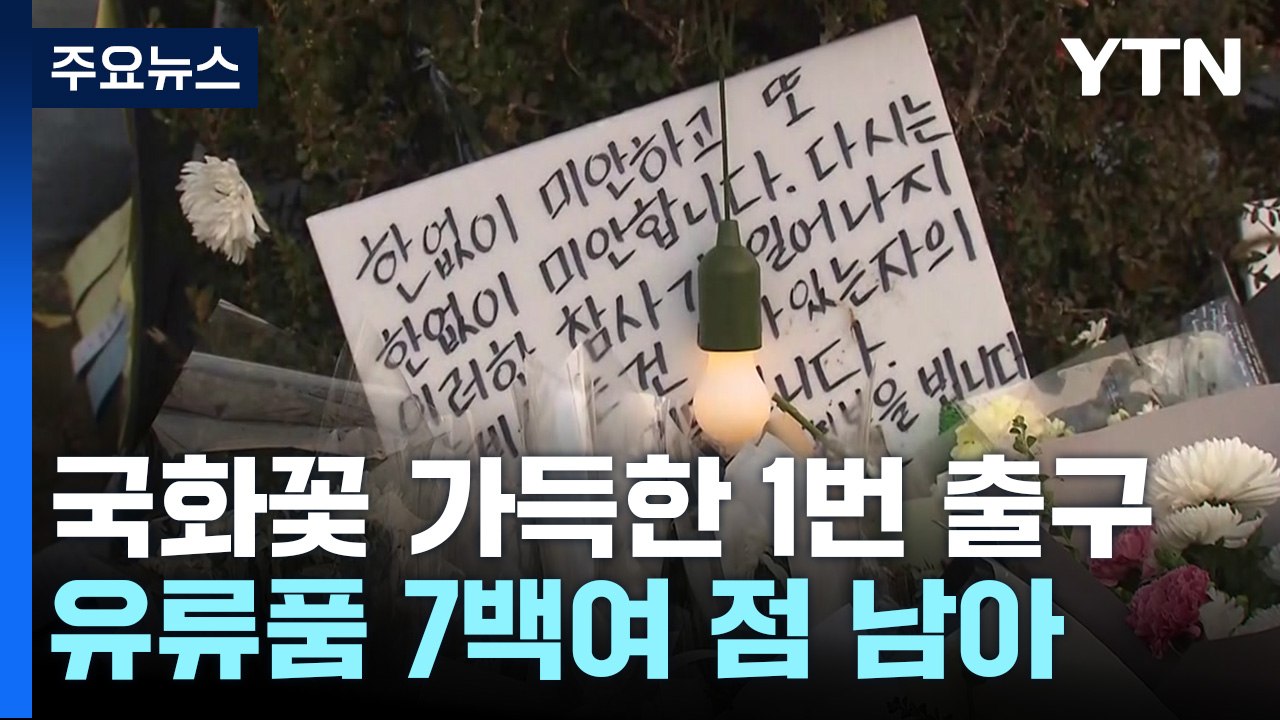 주요뉴스
YTN
한없이 미안하고 또
한없이 미안합니다. 다시는
이러한 참사가 일어나지
있는자의
건 니다.
을 빕니다
국화꽃 가득한 1번 출구
유류품 7백여 점 남아